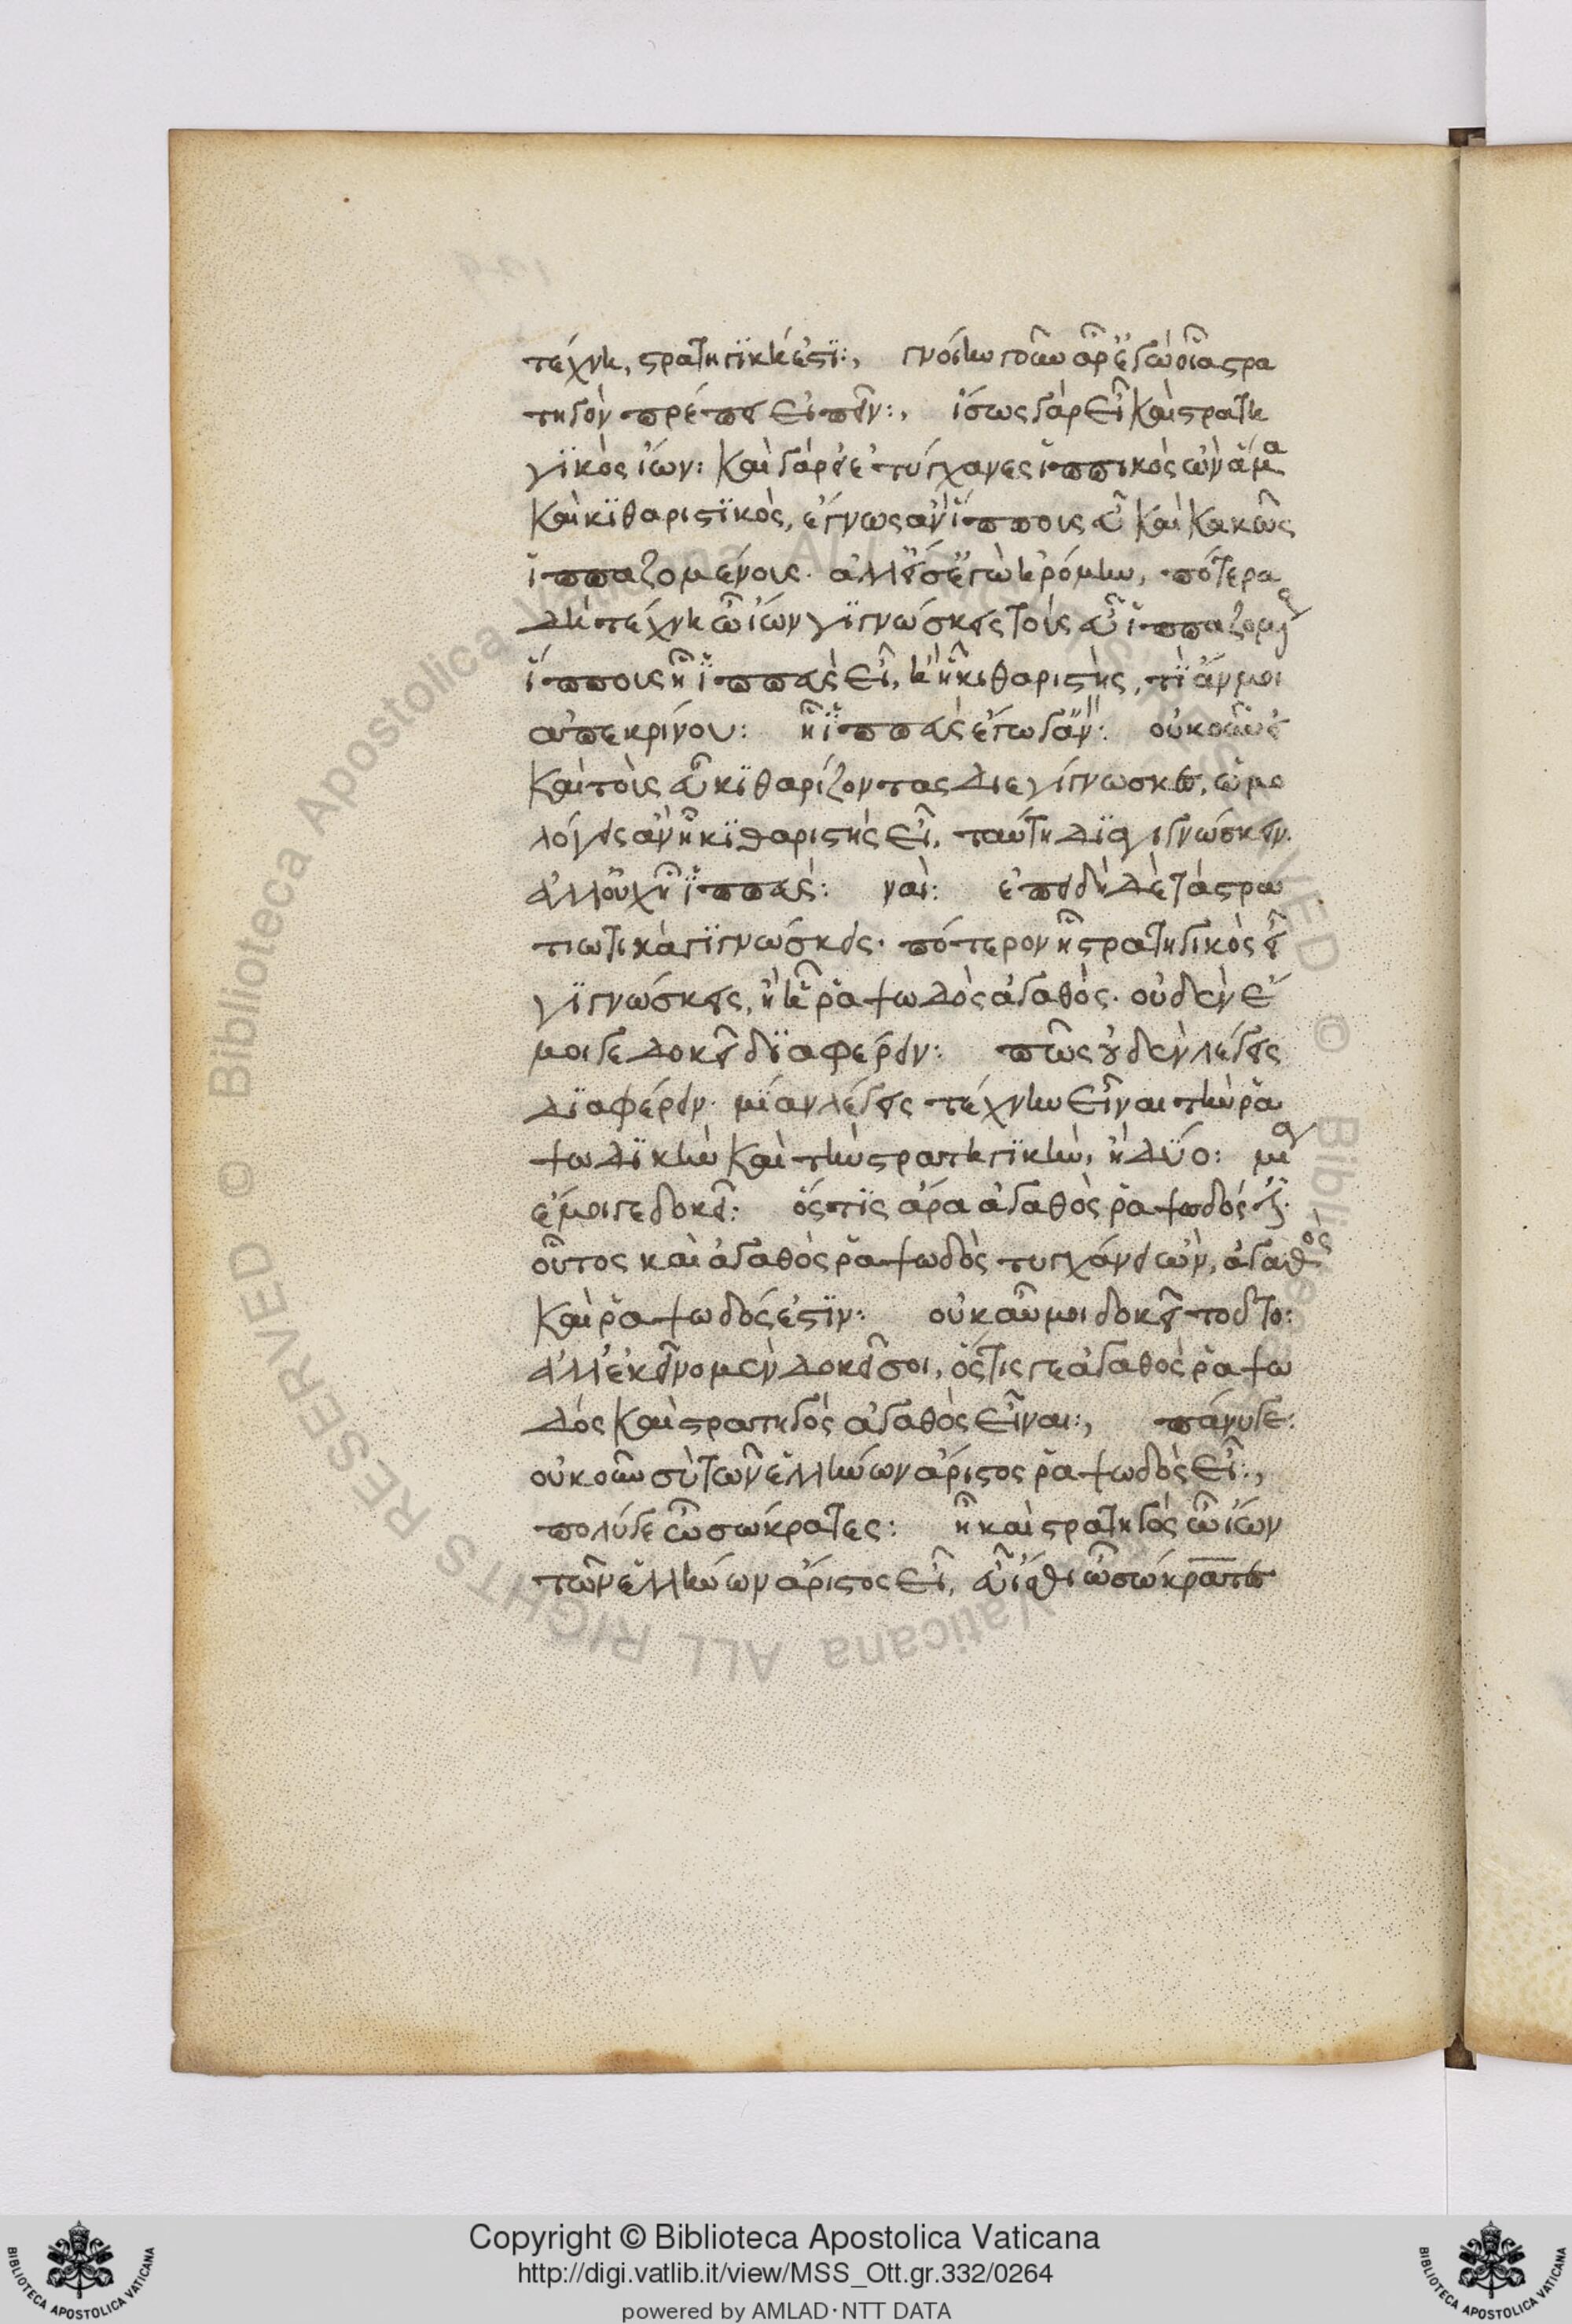 τέχνη, στρατηγϊκή ἐστϊ:, γνοίην γοῦν ἂρ ἔγωγ οἷα στρα
τηγὸν πρέπει εἰπεῖν:, ἴσως γὰρ εἶ καὶ στρατη
γϊκὸς ἴων: καὶ γὰρ εἰ ἐτύγχανες ἱππικὸς ὢν ἅμα
καὶ κϊθαριστϊκὸς, ἔγνως ἂν ἵππους εὖ καὶ κακῶς
ἱππαζομένους. ἀλλ' εἴ σ' ἐγὼ ἠρόμην, πότερα
δὴ τέχνη ὦ ἴων γϊγνώσκεις τοὺς εὖ ἱππαζομένους
ἵππους ἧ ἱππεὺς εἶ, ἢ ἧ κιθαριστὴς, τϊ ἄν μοι
ἀπεκρίνου: ἧ ἱππεὺς ἔγωγ ἄν: οὐκοῦν εἰ
καὶ τοὺς εὖ κϊθαρίζοντας διεγίγνωσκες, ὡμο
λόγεις ἂν ἧ κϊθαριστὴς εἶ, ταύτη δϊαγιγνώσκειν.
ἀλλ' οὐχ ἧ ἱππεὺς: ναὶ: ἐπειδὴ δὲ τὰ στρα
τιωτικὰ γϊγνώσκεις. πότερον ἧ στρατηγικὸς εἶ
γϊγνώσκεις, ἢ ἧ ῥαψωδὸς ἀγαθὸς. οὐδὲν ἔ
μοιγε δοκεῖ δϊαφέρειν: πῶς οὐδὲν λέγεις
δϊαφέρειν. μϊαν λέγεις τέχνην εἶναι τὴν ῥα
ψωδϊκὴν καὶ τὴν στρατηγϊκὴν, ἢ δϋο: μία
ἔμοιγε δοκεῖ: ὅστϊς ἄρα ἀγαθὸς ῥαψωδός ἐστι.
οὗτος καὶ ἀγαθὸς ῥαψωδὸς τυγχάνει ὢν, ἀγαθὸς
καὶ ῥαψωδός ἐστϊν: οὐκ αὖ μοι δοκεῖ τοῦτο:
ἀλλ' ἐκεῖνο μὲν δοκεῖ σοι, ὅστις γε ἀγαθὸς ῥαψω
δός καὶ στρατηγὸς ἀγαθὸς εἶναι:, πάνυ γε:
οὐκοῦν σὺ τῶν ἑλλήνων ἄριστος ῥαψωδὸς εἶ:,
πολύ γε ὦ σώκρατες: ἧ καὶ στρατηγὸς ὦ ἴων
τῶν ἑλλήνων ἄριστος εἶ, εὖ ἴσθι ὦ σώκρατες
Copyright © Biblioteca Apostolica Vaticana
http://digi.vatlib.it/view/MSS_Ott.gr.332/0264
powered by AMLAD·NTT DATA
BIBLIOTECA APOSTOLICA VATICANA
BIBLIOTECA APOSTOLICA VATICANA